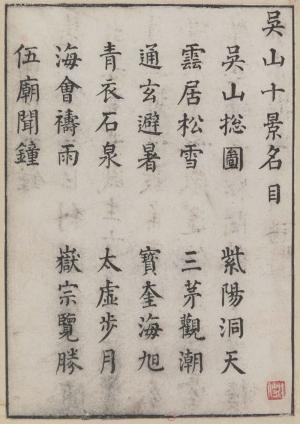 吳山十景名目
吳山総圖 紫陽洞天
雲居松雪 三茅觀潮
通玄避暑 寳奎海旭
青衣石泉 太虛步月
海會禱雨 嶽宗覽勝
伍廟聞鐘